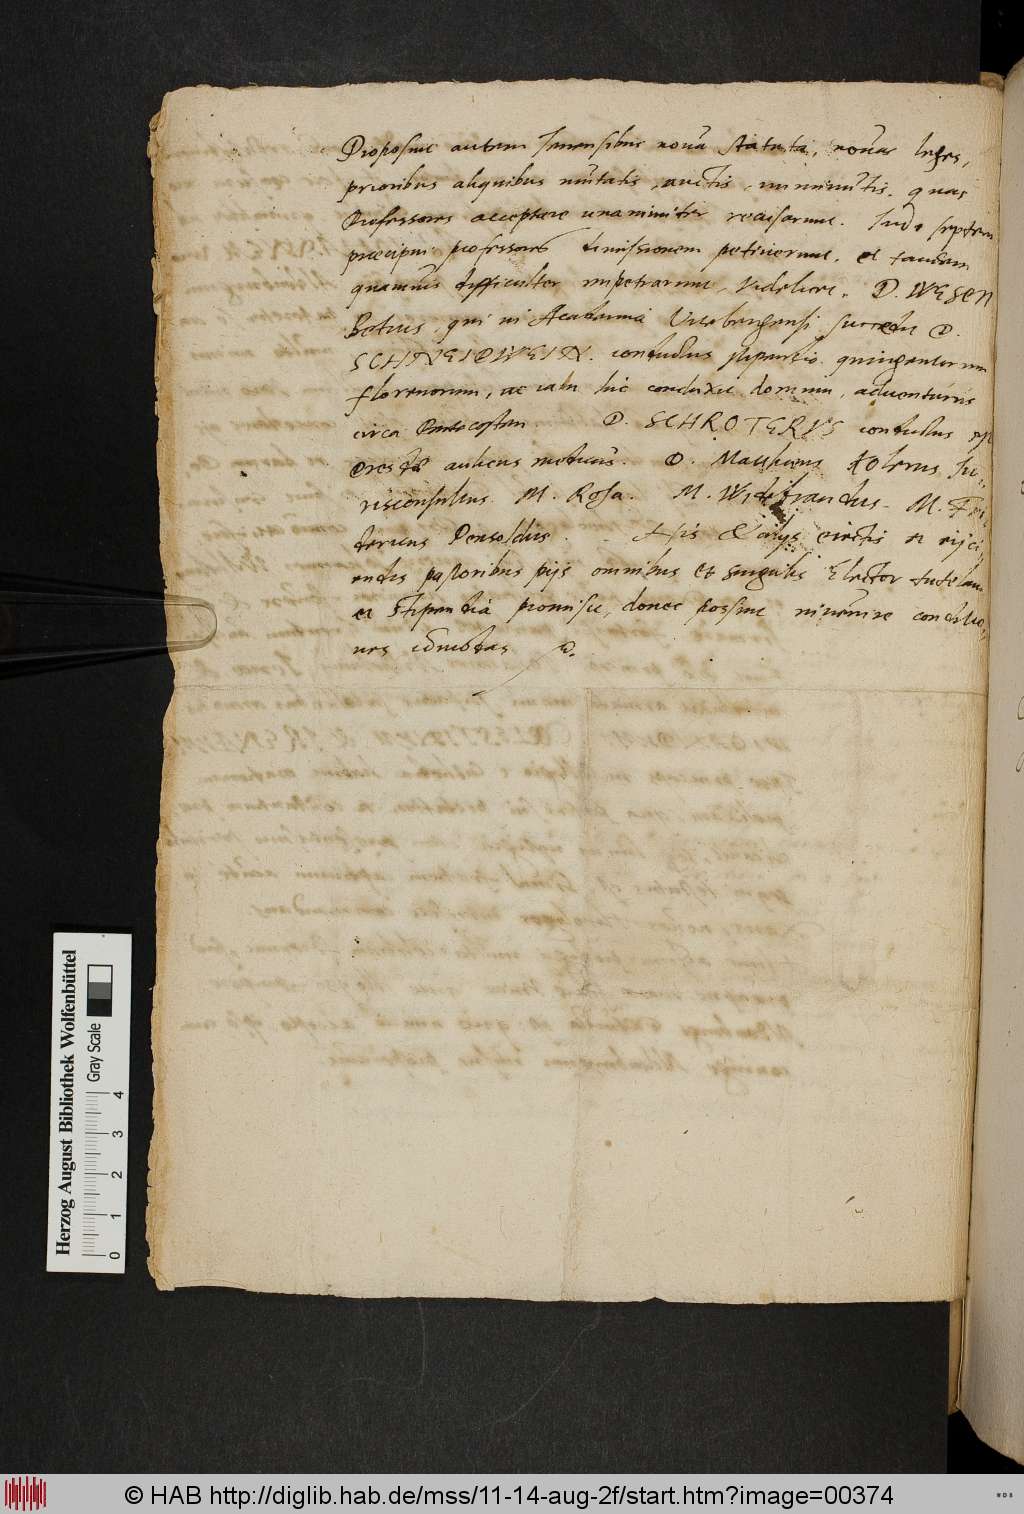 Proposuit autem Ienensibus nova statuta, novas leges,
prioribus aliquibus mutatis, auctis, imminutis. quas
Professores acceptare unanimiter recusarunt. Inde septem
praecipui professores dimissionem petiverunt, et tandem
quamvis difficulter impetrarunt, videlicet. D. WESEN
Betius, qui in Academia Vitebergensi succedit D.
SCHNEIDWEIN. conductus stipendio quingentorum
florenorum, ac iam hic conduxit domum, adventurus
circa Pentecosten. D. SCHROTERUS conductus
aulicus medicus. D. Matthaeus Kolerus Iu-
risconsultus. M. Rosa. M. Widebrandus. M. Fri
dericus Pensoldus. His & alijs eiectis et eijci-
endis pastoribus pijs omnibus et singulis Elector tutelam
et stipendia promisit, donec possint invenire conditio-
nes idoneas
Herzog August Bibliothek Wolfenbüttel
Gray Scale
0 1 2 3 4
© HAB http://diglib.hab.de/mss/11-14-aug-2f/start.htm?image=00374